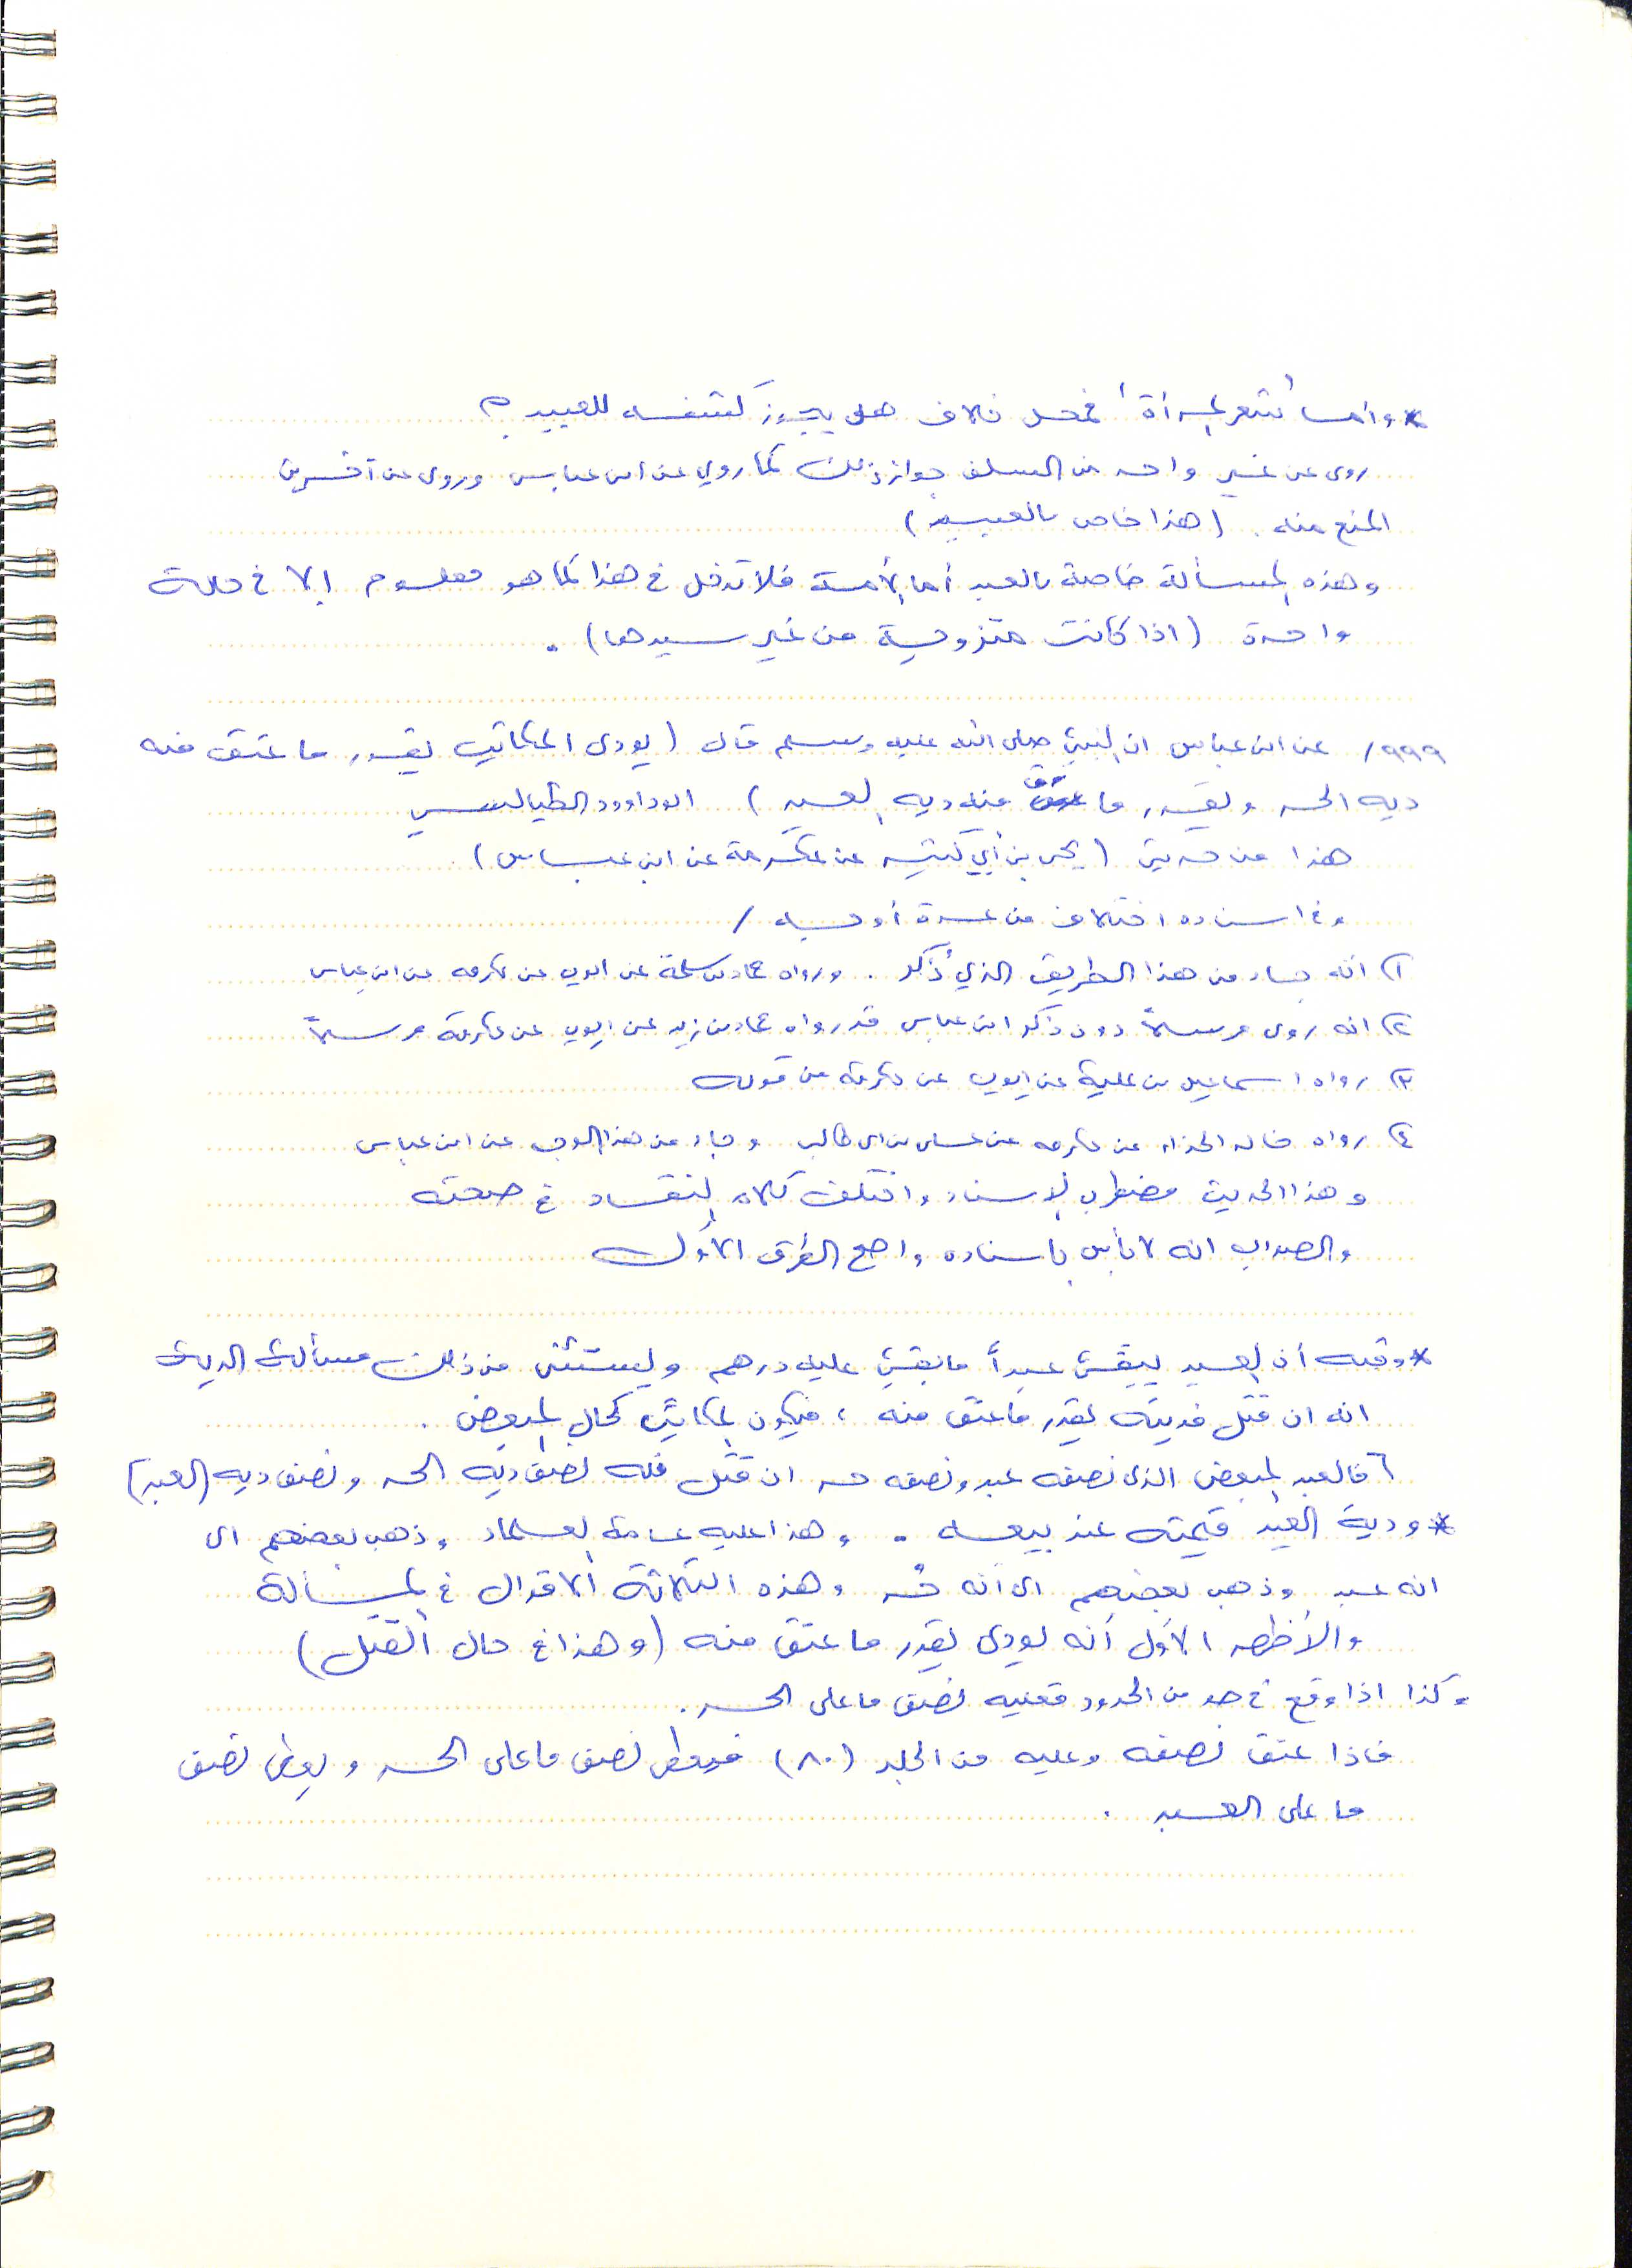 * وأما شعر المرأة فمحل خلاف هل يجوز كشفه للعبيد ؟
روى عن غير واحد من السلف جواز ذلك كما روي عن ابن عباس وروى عن آخرين
المنع منه . (هذا خاص بالعبيد)
وهذه المسألة خاصة بالعبد أما الأمة فلا تدخل في هذا كما هو معلوم إلا في حالة
واحدة (اذا كانت متزوجة من غير سيدها) .
٩٩٩/ عن ابن عباس ان النبي صلى الله عليه وسلم قال (يودى المكاتب بقدر ما عتق منه
دية الحر وبقدر ما رق منه دية العبد) ابوداوود الطيالسي
هذا من حديث (يحي بن أبي كثير عن عكرمة عن ابن عباس)
وفي اسناده اختلاف من عدة أوجه /
١) انه جاء من هذا الطريق الذي ذُكر . ورواه حماد بن سلمة عن ايوب عن عكرمه عن ابن عباس
٢) انه روى مرسلاً دون ذكر ابن عباس قد رواه حماد بن زيد عن ايوب عن عكرمة مرسلاً
٣) رواه اسماعيل بن علية عن ايوب عن عكرمة من قوله
٤) رواه خالد الحذاء عن عكرمه عن علي بن ابي طالب وجاء من هذا الوجه عن ابن عباس
وهذا الحديث مضطرب الإسناد واختلف كلام النقاد في صحته
والصواب انه لا بأس باسناده واصح الطرق الأول
* وفيه أن العبد يبقى عبداً ما بقي عليه درهم ويستثنى من ذلك مسألة الدية
انه ان قتل فديته بقدر ما عتق منه ، فيكون المكاتب كحال المبعض .
فالعبد المبعض الذي نصفه عبد ونصفه حر ان قتل فله نصف دية الحر ونصف ديه (العبد)
* ودية العبد قيمته عند بيعه . وهذا عليه عامة العلماء وذهب بعضهم الى
انه عبد وذهب بعضهم الى أنه حُر وهذه الثلاثة الاقوال في المسألة
والأظهر الأول أنه يودى بقدر ما عتق منه (وهذا في حال القتل)
وكذا اذا وقع في حد من الحدود فعليه نصف ما على الحر .
فاذا عتق نصفه وعليه من الجلد (٨٠) فيعطى نصف ما على الحر ويعطى نصف
ما على العبد .